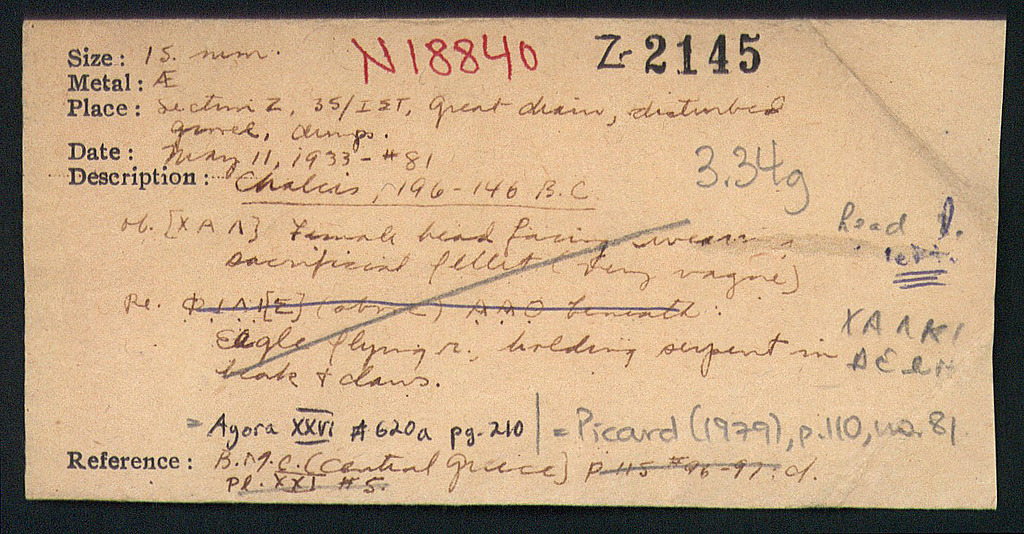 N18840 Z-2145
Size: 15. mm.
Metal: Æ
Place: Section Z, 35/ΙΣΤ, Great drain, disturbed
gravel, dumps.
Date: May 11, 1933 - #81
3.34g
Description: Chalcis, 196-146 B.C.
Ob. [ΧΑΛ] Female head facing wearing
sacrificial fillet (very vague)
head
left.
Re. (above) beneath.
Eagle flying r., holding serpent in
beak & claws.
ΧΑΛΚΙ
= Agora XXVI #620a pg. 210 | = Picard (1979), p.110, no. 81
Reference: B.M.C. (Central Greece) p 115 #96-97. cf.
pl. XXI #5.